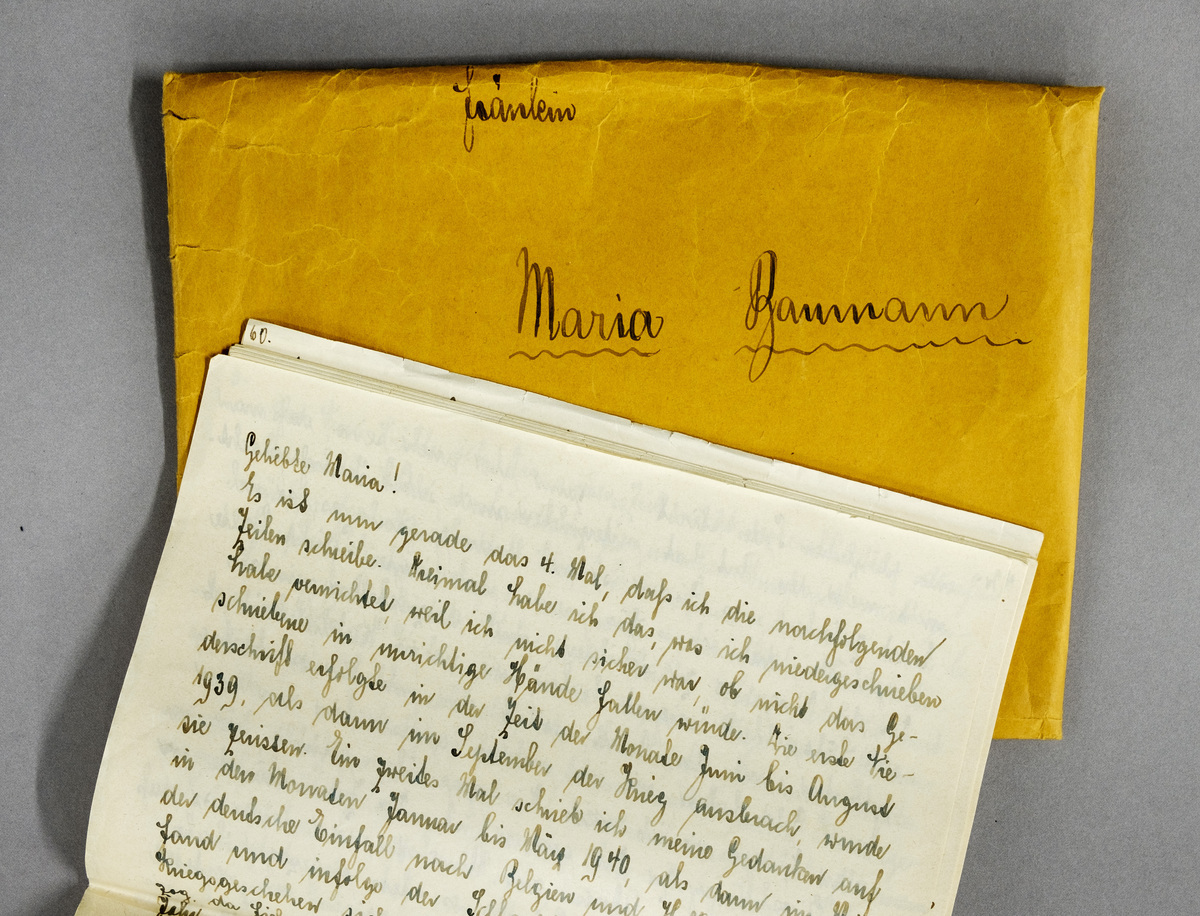 Fräulein
Maria Baumann
60.
Geliebte Maria!
Es ist nun gerade das 4. Mal, daß ich die nachfolgenden
Zeilen schreibe. Dreimal habe ich das, was ich niedergeschrieben
habe vernichtet, weil ich nicht sicher war, ob nicht das Ge-
schriebene in unrichtige Hände fallen würde. Die erste Nie-
derschrift erfolgte in der Zeit der Monate Juni bis August
1939, als dann im September der Krieg ausbrach, wurde
sie zerissen. Ein zweites Mal schrieb ich meine Gedanken auf
in den Monaten Januar bis März 1940, als dann im
der deutsche Einfall nach Belgien und
fand und infolge der
Kriegsgeschehen
zog, da